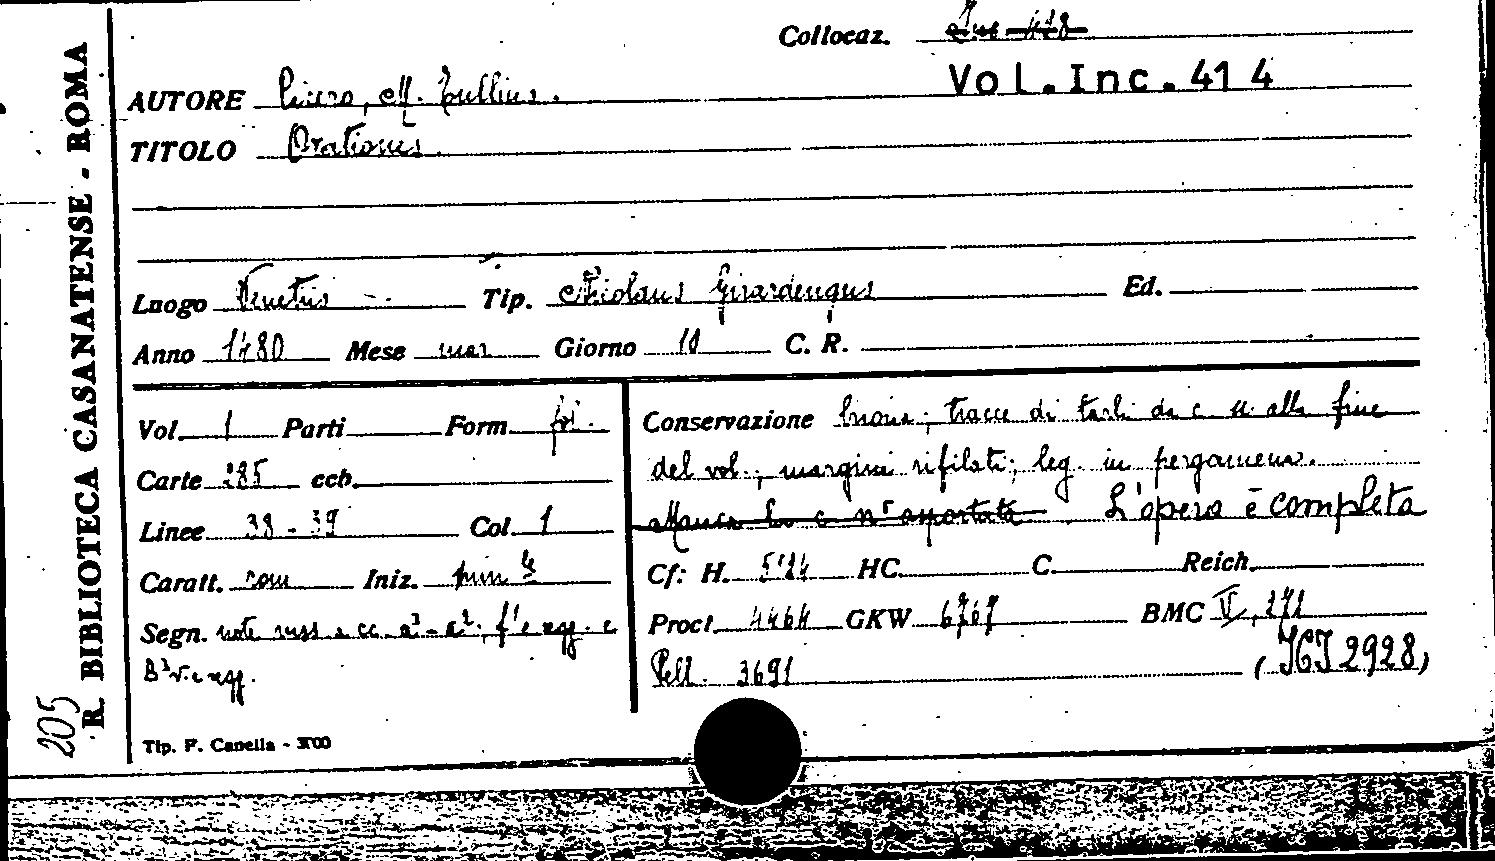 Collocaz. Inc 418
Vol.Inc.414
AUTORE Cicero, M. Tullius.
TITOLO Orationes.
Luogo Venetiis Tip. Nicolaus Girardengus Ed.
Anno 1480 Mese mar Giorno 10 C. R.
Vol. 1 Parti Form. fol.
Carte 285 ecb.
Linee 38-39 Col. 1
Caratt. rom Iniz. min
Segn. note mss a cc. a² f¹ e sgg. e
B³v. e sgg.
Conservazione buona; tracce di tarli da c. alla fine
del vol.; margini rifilati; leg. in pergamena.
Manca la c. asportata. L'opera è completa
Cf: H. 5124 HC. C. Reich.
Proct. 4464 GKW 6767 BMC V, 272
Pell. 3691 (IGI 2928)
Tip. F. Canella - 3000
R. BIBLIOTECA CASANATENSE - ROMA
205